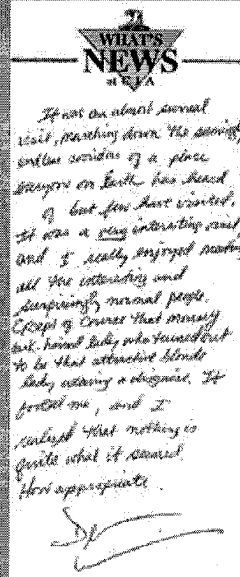 WHAT'S
NEWS
at CIA
It was an almost surreal
visit, marching down the seemingly
endless corridors of a place
everyone on Earth has heard
of but few have visited.
It was a very interesting visit
and I really enjoyed meeting
all the interesting and
surprisingly normal people.
Except of course that mousy
dark-haired lady who turned out
to be that attractive blonde
lady wearing a disguise. It
fooled me, and I
realized that nothing is
quite what it seemed.
How appropriate.